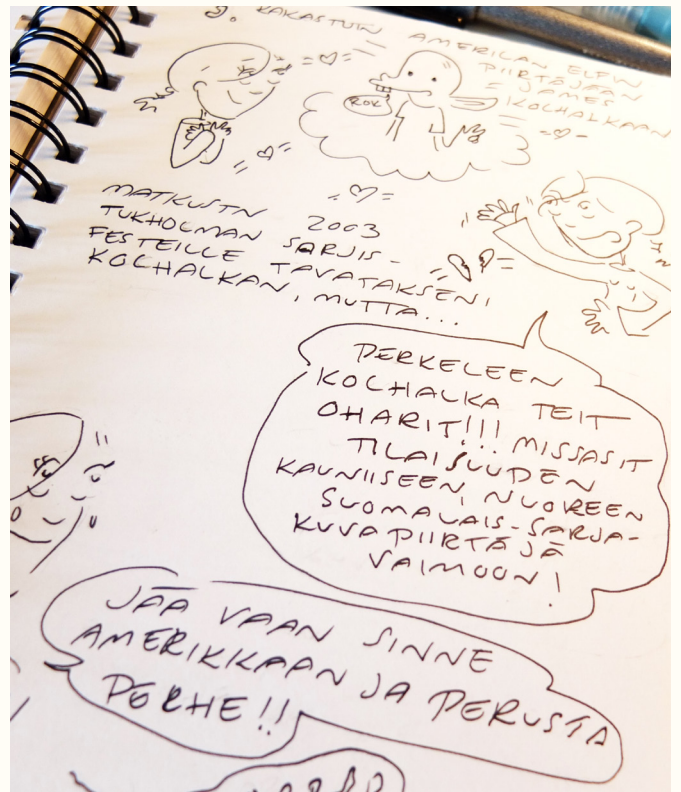 8. KAKASTUIN
AMERICAN ELFIN
PIIRTÄJÄÄN
JAMES
KOCHALKAAN
ROK
MATKUSTN 2003
TUKHOLMAN SARJIS-
FESTEILLE TAVATAKSENI
KOCHALKAN, MUTTA...
PERKELEEN
KOCHALKA TEIT
OHARIT!!! MISSASIT
TILAISUUDEN
KAUNIISEEN, NUOREEN
SUOMALAIS-SARJA-
KUVAPIIRTÄJÄ
VAIMOON!
JÄÄ VAAN SINNE
AMERIKKAAN JA PERUSTA
PERHE!!